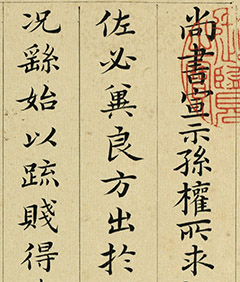 尚書宣示孫權所求
佐必冀良方出於
况繇始以疏賤得